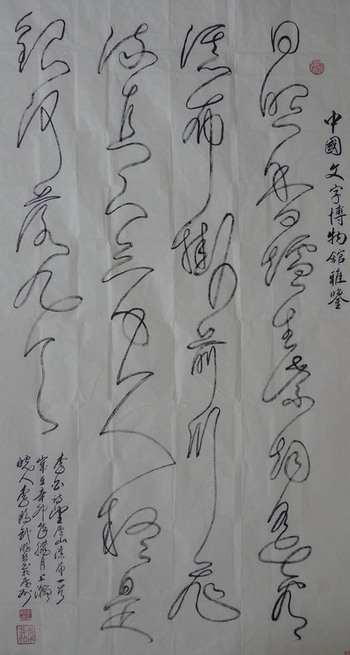 中國文字博物館雅鑒
日照香爐生紫烟遙看
瀑布掛前川飛
流直下三千尺疑是
銀河落九天
李白詩望廬山瀑布一首
歲在辛卯年臘月上瀚